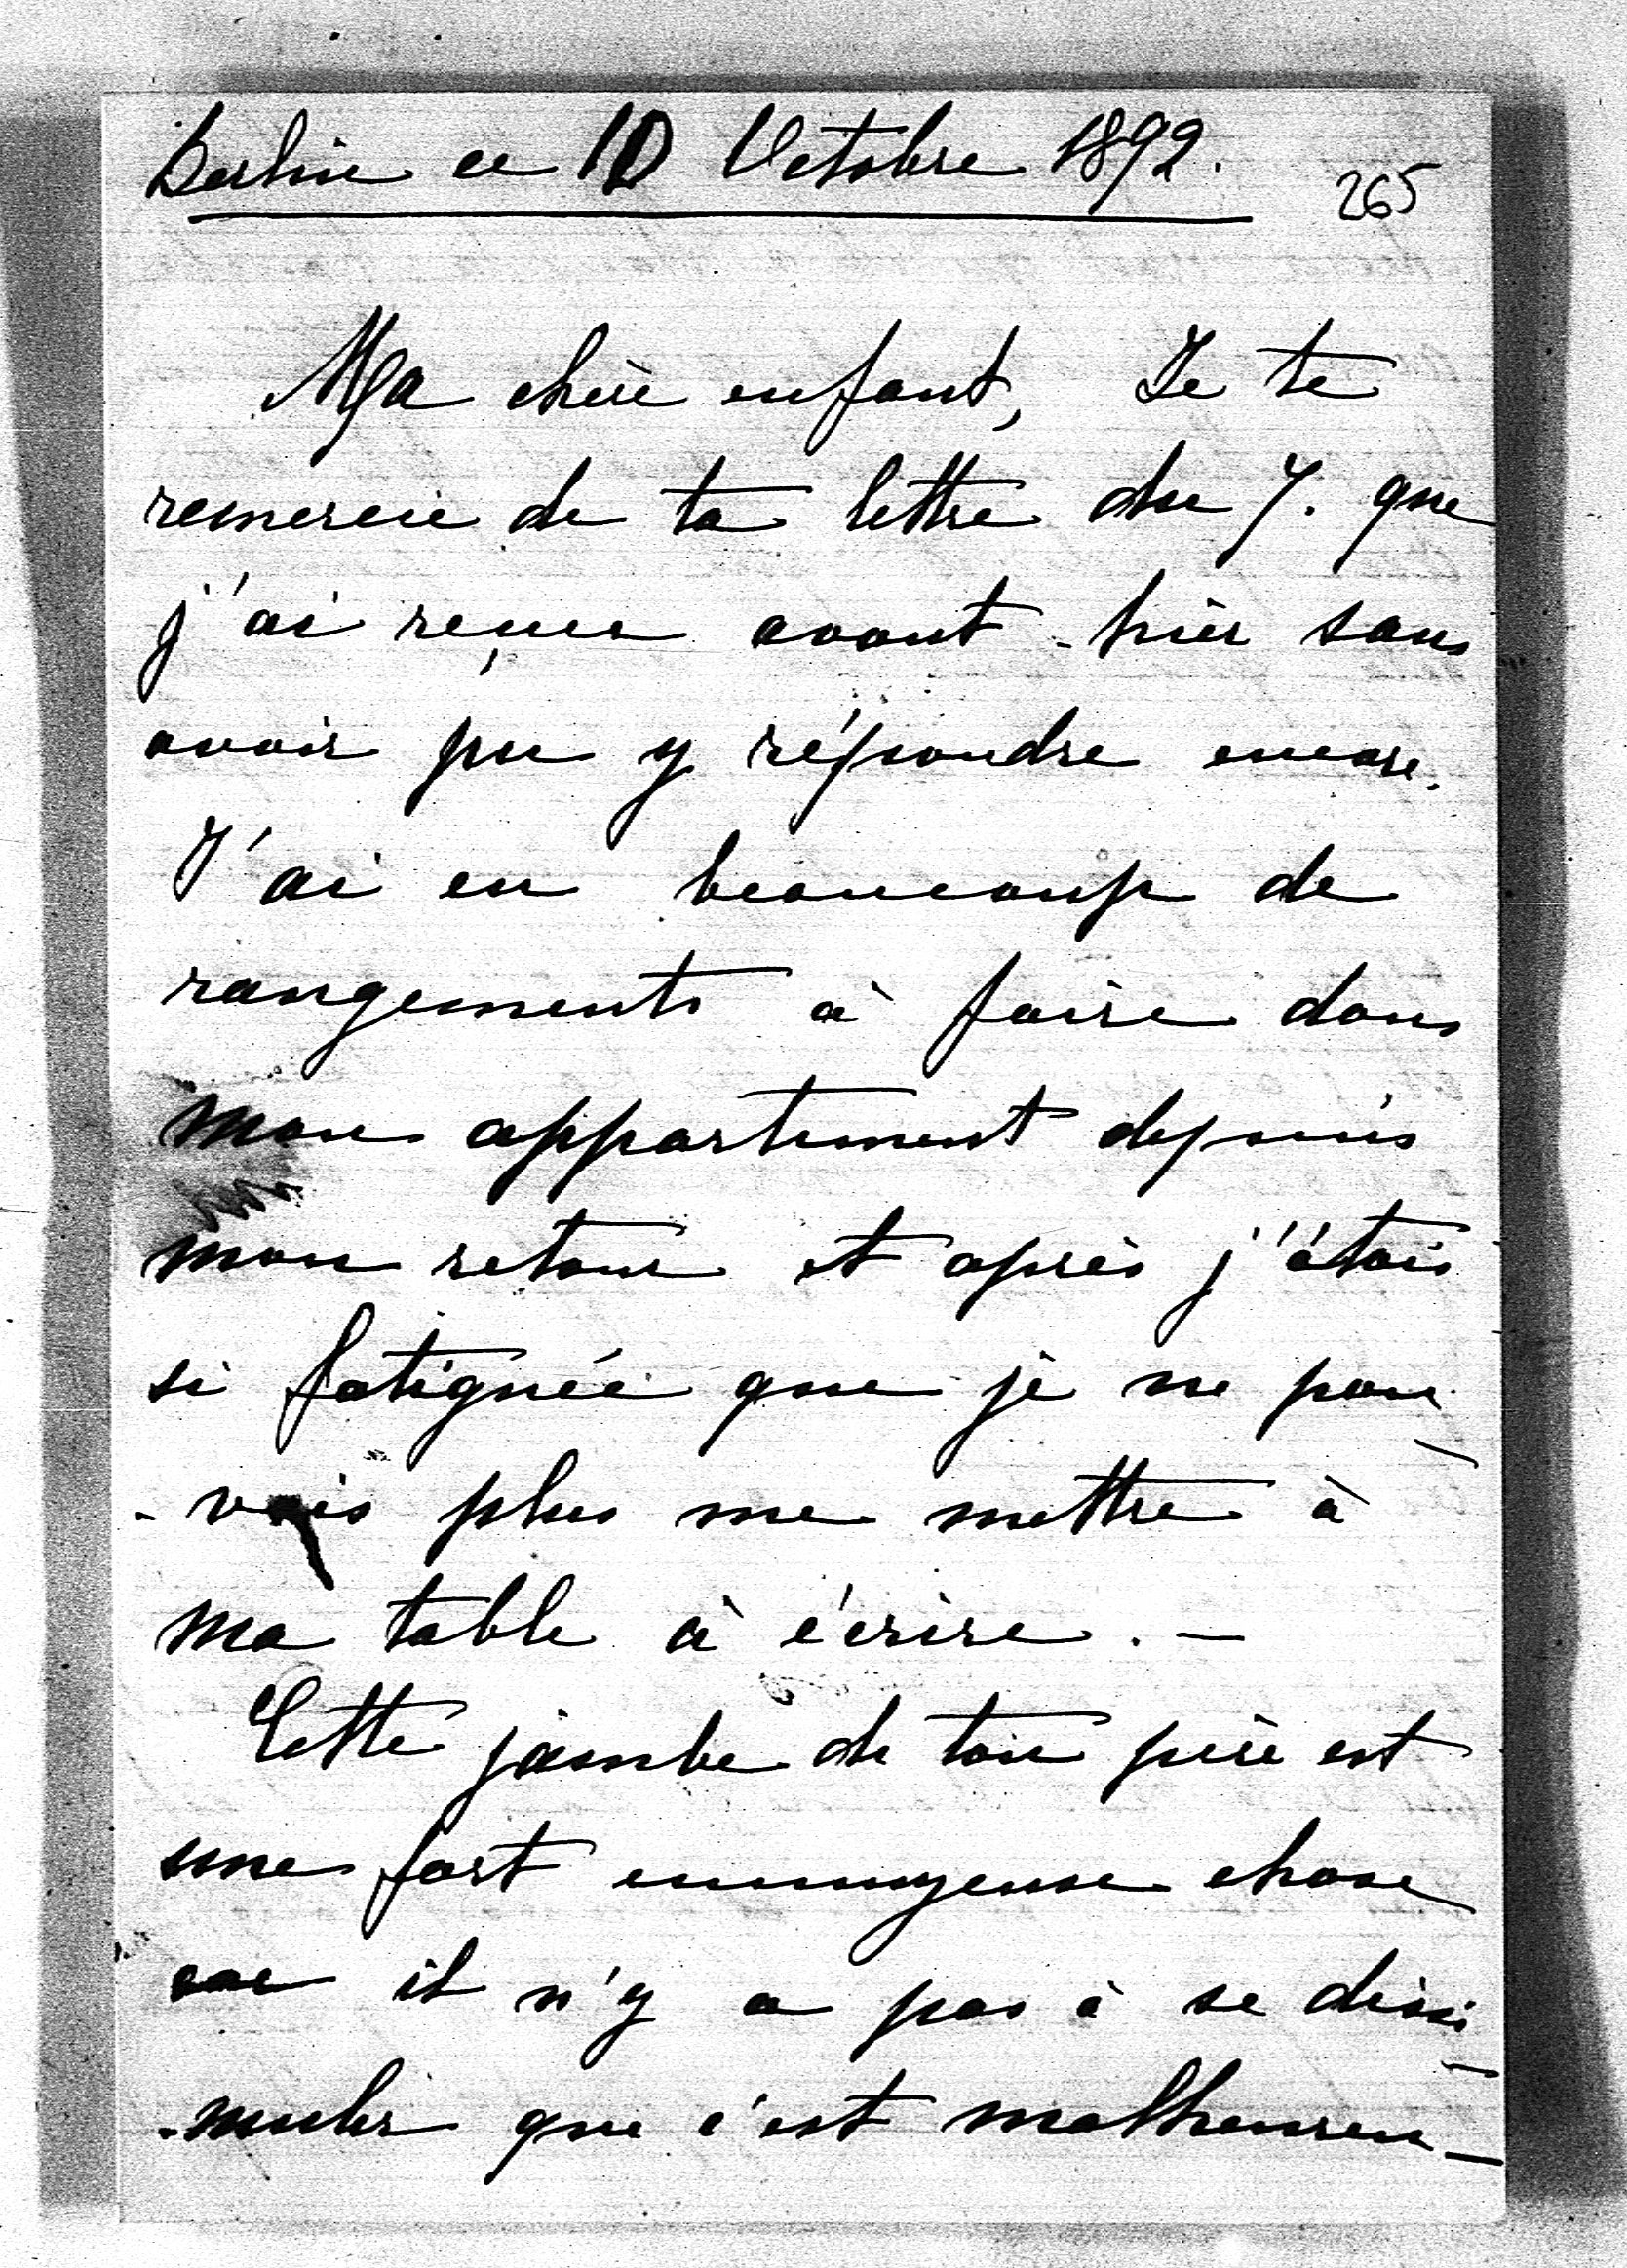 Berlin ce 10 Octobre 1892.
265
Ma chère enfant, Je te
remercie de ta lettre du 7. que
j'ai reçue avant-hier sans
avoir pu y répondre encore.
J'ai eu beaucoup de
rangements à faire dans
mon appartement depuis
mon retour et après j'étais
si fatiguée que je ne pou-
-vais plus me mettre à
ma table à écrire. —
Cette jambe de ton père est
une fort ennuyeuse chose
car il n'y a pas à se dissi-
-muler que c'est malheureu-